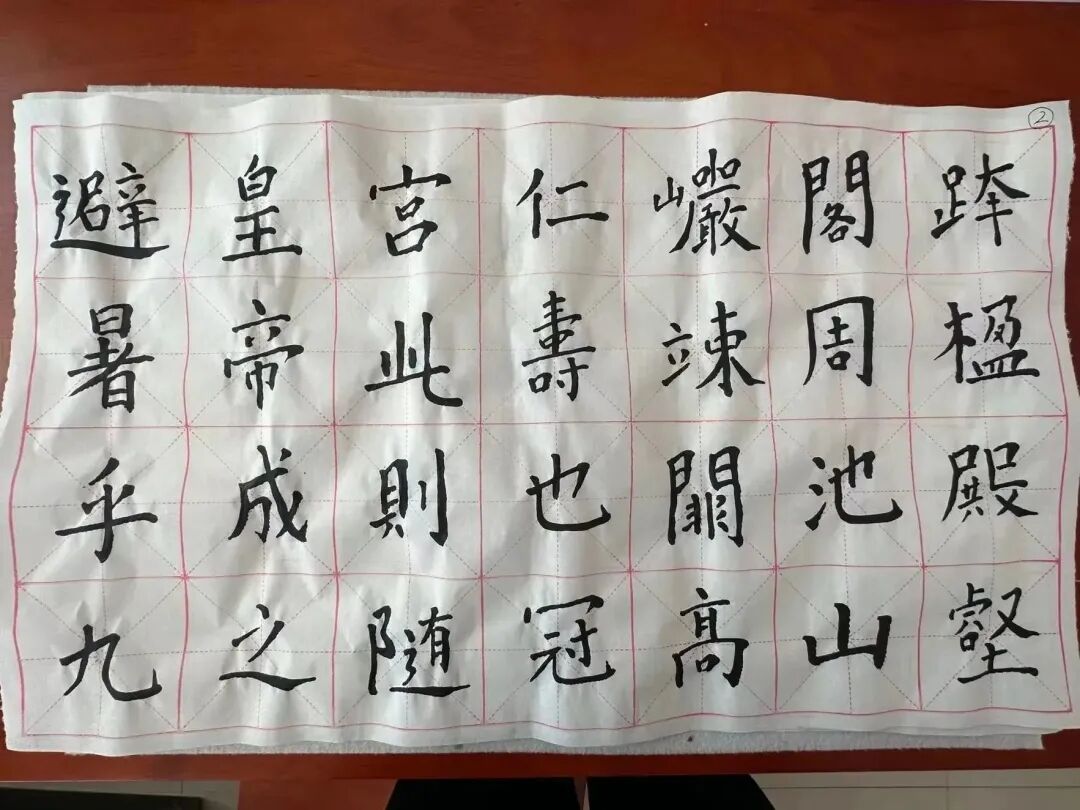 避暑乎九
皇帝成之
宮此則隨
仁壽也冠
巖竦闕高
閣周池山
跨楹殿壑
②